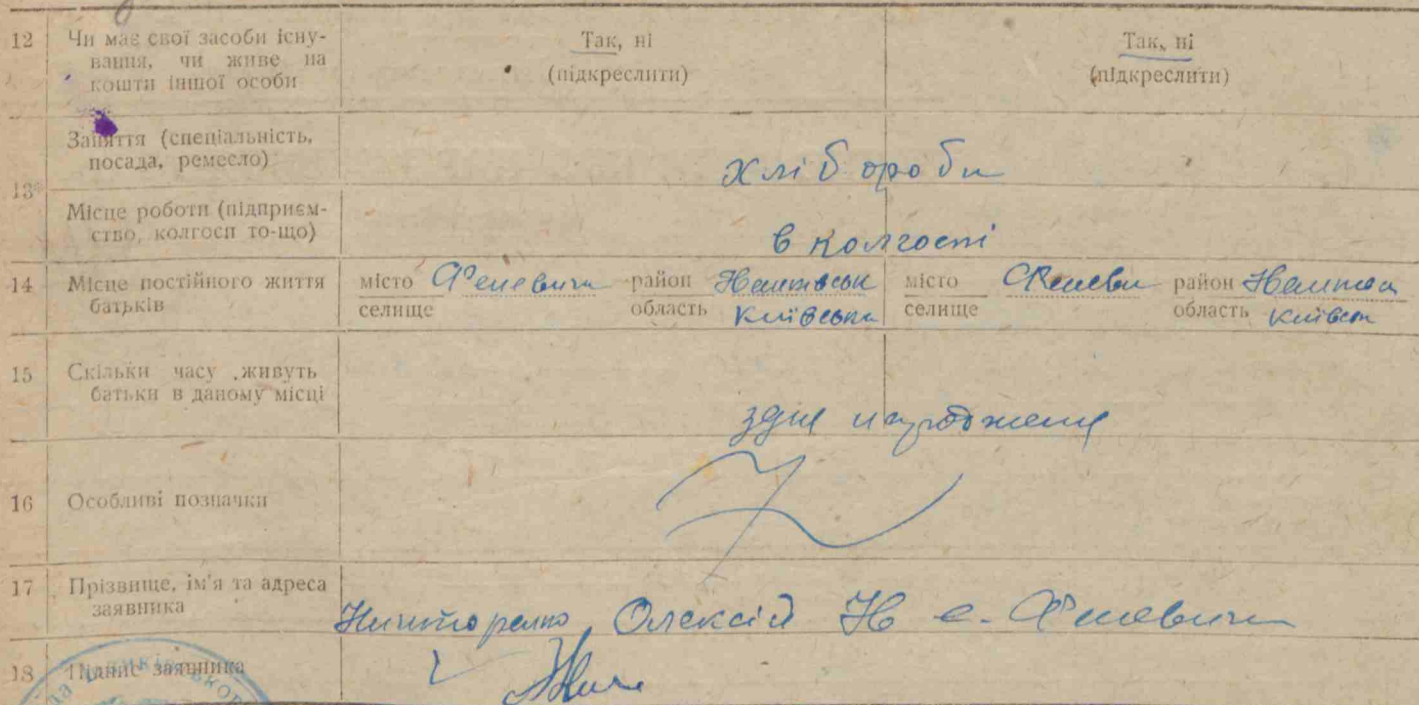 12 Чи має свої засоби існу-
вання, чи живе на
кошти іншої особи
Так, ні
(підкреслити)
Так, ні
(підкреслити)
13 Заняття (спеціальність,
посада, ремесло)
хлібороби
Місце роботи (підприєм-
ство, колгосп то-що)
в колгоспі
14 Місце постійного життя
батьків
місто Феневичи район
селище область Київська
місто Феневи район
селище область Київськ
15 Скільки часу живуть
батьки в даному місці
з дня народження
16 Особливі позначки
17 Прізвище, ім'я та адреса
заявника
Олексій Н с. Феневичи
18 Підпис заявника